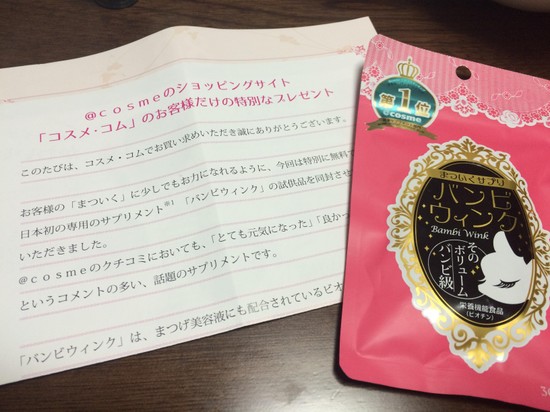 @cosmeのショッピングサイト
「コスメ・コム」のお客様だけの特別なプレゼント
このたびは、コスメ・コムでお買い求めいただき誠にありがとうございます。
お客様の「まついく」に少しでもお力になれるように、今回は特別に無料で
日本初の専用のサプリメント※1「バンビウィンク」の試供品を同封させ
いただきました。
@cosmeのクチコミにおいても、「とても元気になった」「良かっ
というコメントの多い、話題のサプリメントです。
「バンビウィンク」は、まつげ美容液にも配合されているビオ
第1位
@cosme
まついくサプリ
バンビ
ウィンク
Bambi Wink
その
ボリューム
バンビ級
栄養機能食品
(ビオチン)